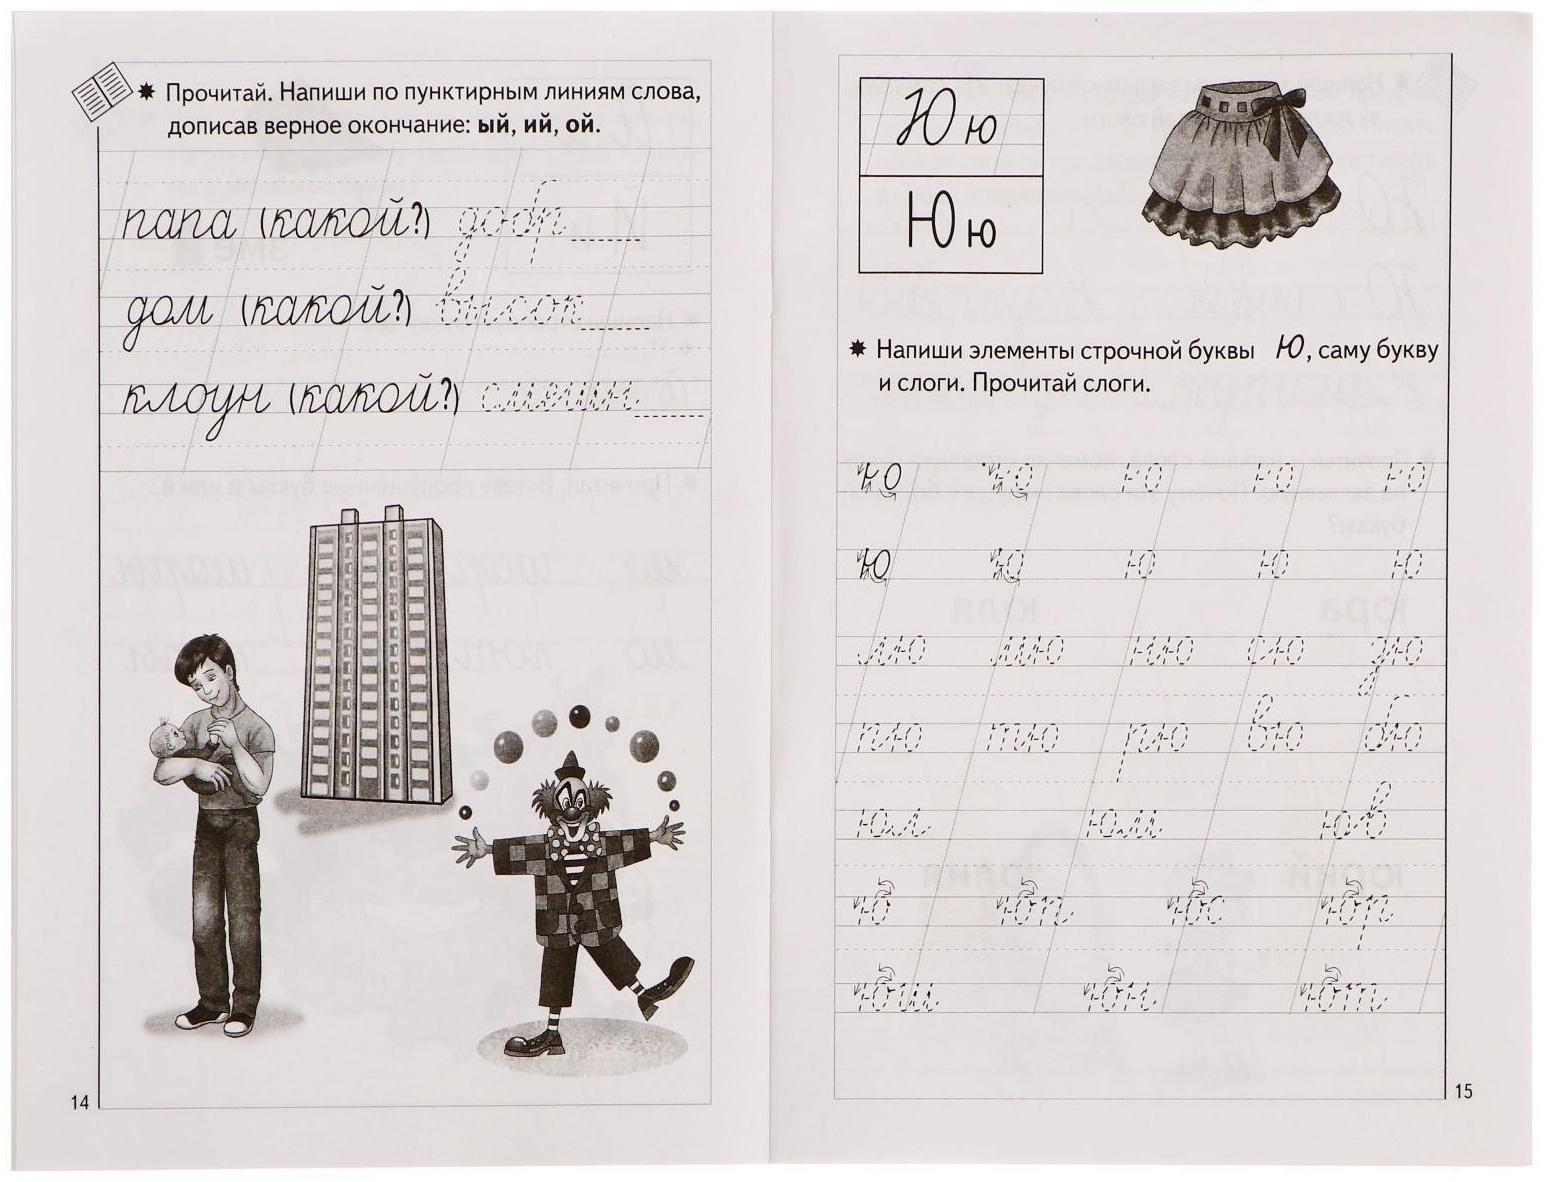 Прочитай. Напиши по пунктирным линиям слова,
дописав верное окончание: ый, ий, ой.
папа (какой?) добр
дом (какой?) высок
клоун (какой?) смешн
14
Ю ю
Ю ю
Напиши элементы строчной буквы Ю, саму букву
и слоги. Прочитай слоги.
ю ю ю ю ю
ю ю ю ю ю
лю мю ню сю дю
пю тю рю вю бю
юл юм юв
ю юп юс юр
юш юн ют
15